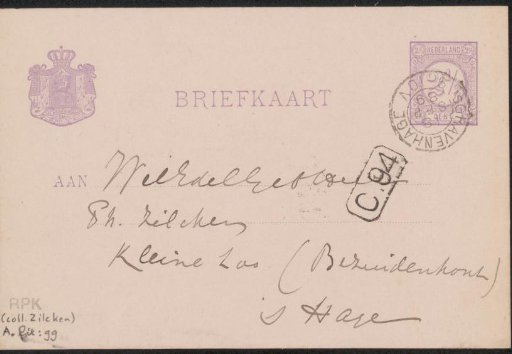 NEDERLAND
'S GRAVENHAGE
BRIEFKAART
C.94
AAN WelEdelGeboren
Ph. Zilcken
Kleine Loo (Bezuidenhout)
's Hage
RPK
(coll. Zilcken)